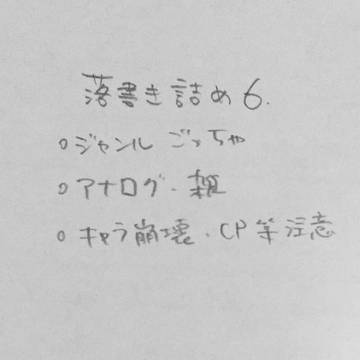 落書き詰め6.
○ジャンルごっちゃ
○アナログ・雑
○キャラ崩壊・CP等注意